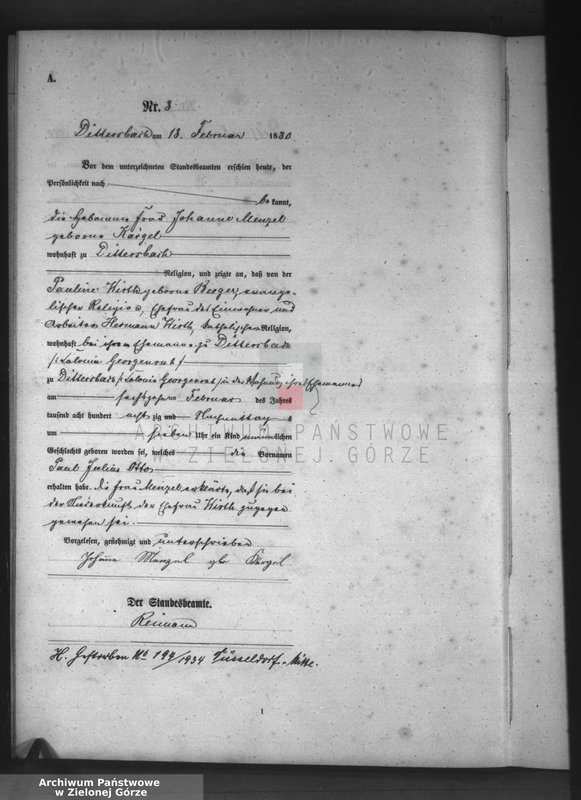 A.
Nr. 3
Dittersbach am 18. Februar 1880
Vor dem unterzeichneten Standesbeamten erschien heute, der
Persönlichkeit nach
be kannt,
die Hebamme Frau Johanne Menzel
geborne Kärgel
wohnhaft zu Dittersbach
Religion, und zeigte an, daß von der
Pauline Wirth, geborne Berger, evange-
lischer Religion, Ehefrau des Einwohner und
Arbeiter Hermann Wirth, katholischer Religion,
wohnhaft bei ihrem Ehemanne zu Dittersbach
/: Colonie Georgenruh /
zu Dittersbach /: Colonie Georgenruh / in der Wohnung ihres Ehemannes
am sechszehn Februar des Jahres
tausend acht hundert acht zig und Nachmittag s
um sieben Uhr ein Kind männlichen
Geschlechts geboren worden sei, welches die Vornamen
Paul Julius Otto
erhalten habe. Die Frau Menzel erklärte, daß sie bei
der Niederkunft der Ehefrau Wirth zugegen
gewesen sei.
Vorgelesen, genehmigt und unterschrieben
Johanne Menzel geb Kärgel
Der Standesbeamte.
Reimann
H. Gestorben No 199/1934 Düsseldorf-Mitte.
1
ARCHIWUM PAŃSTWOWE
W ZIELONEJ GÓRZE
Archiwum Państwowe
w Zielonej Górze